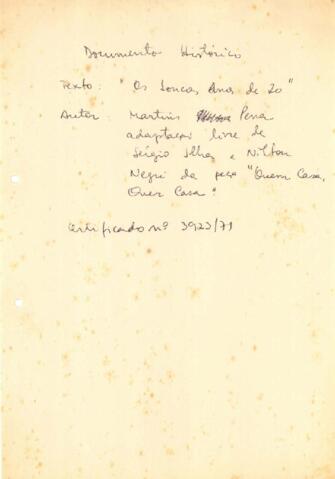 Documento Histórico
Texto: "Os Loucos Anos de 20"
Autor: Martins Pena
adaptação livre de
Sérgio Ilha e Nilton
Negri da peça "Quem Casa,
Quer Casa".
Certificado nº 3923/71